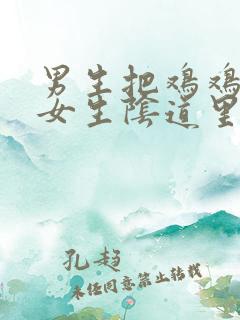 男生把鸡鸡
女生陰道里
孔趋
未经同意禁止转载